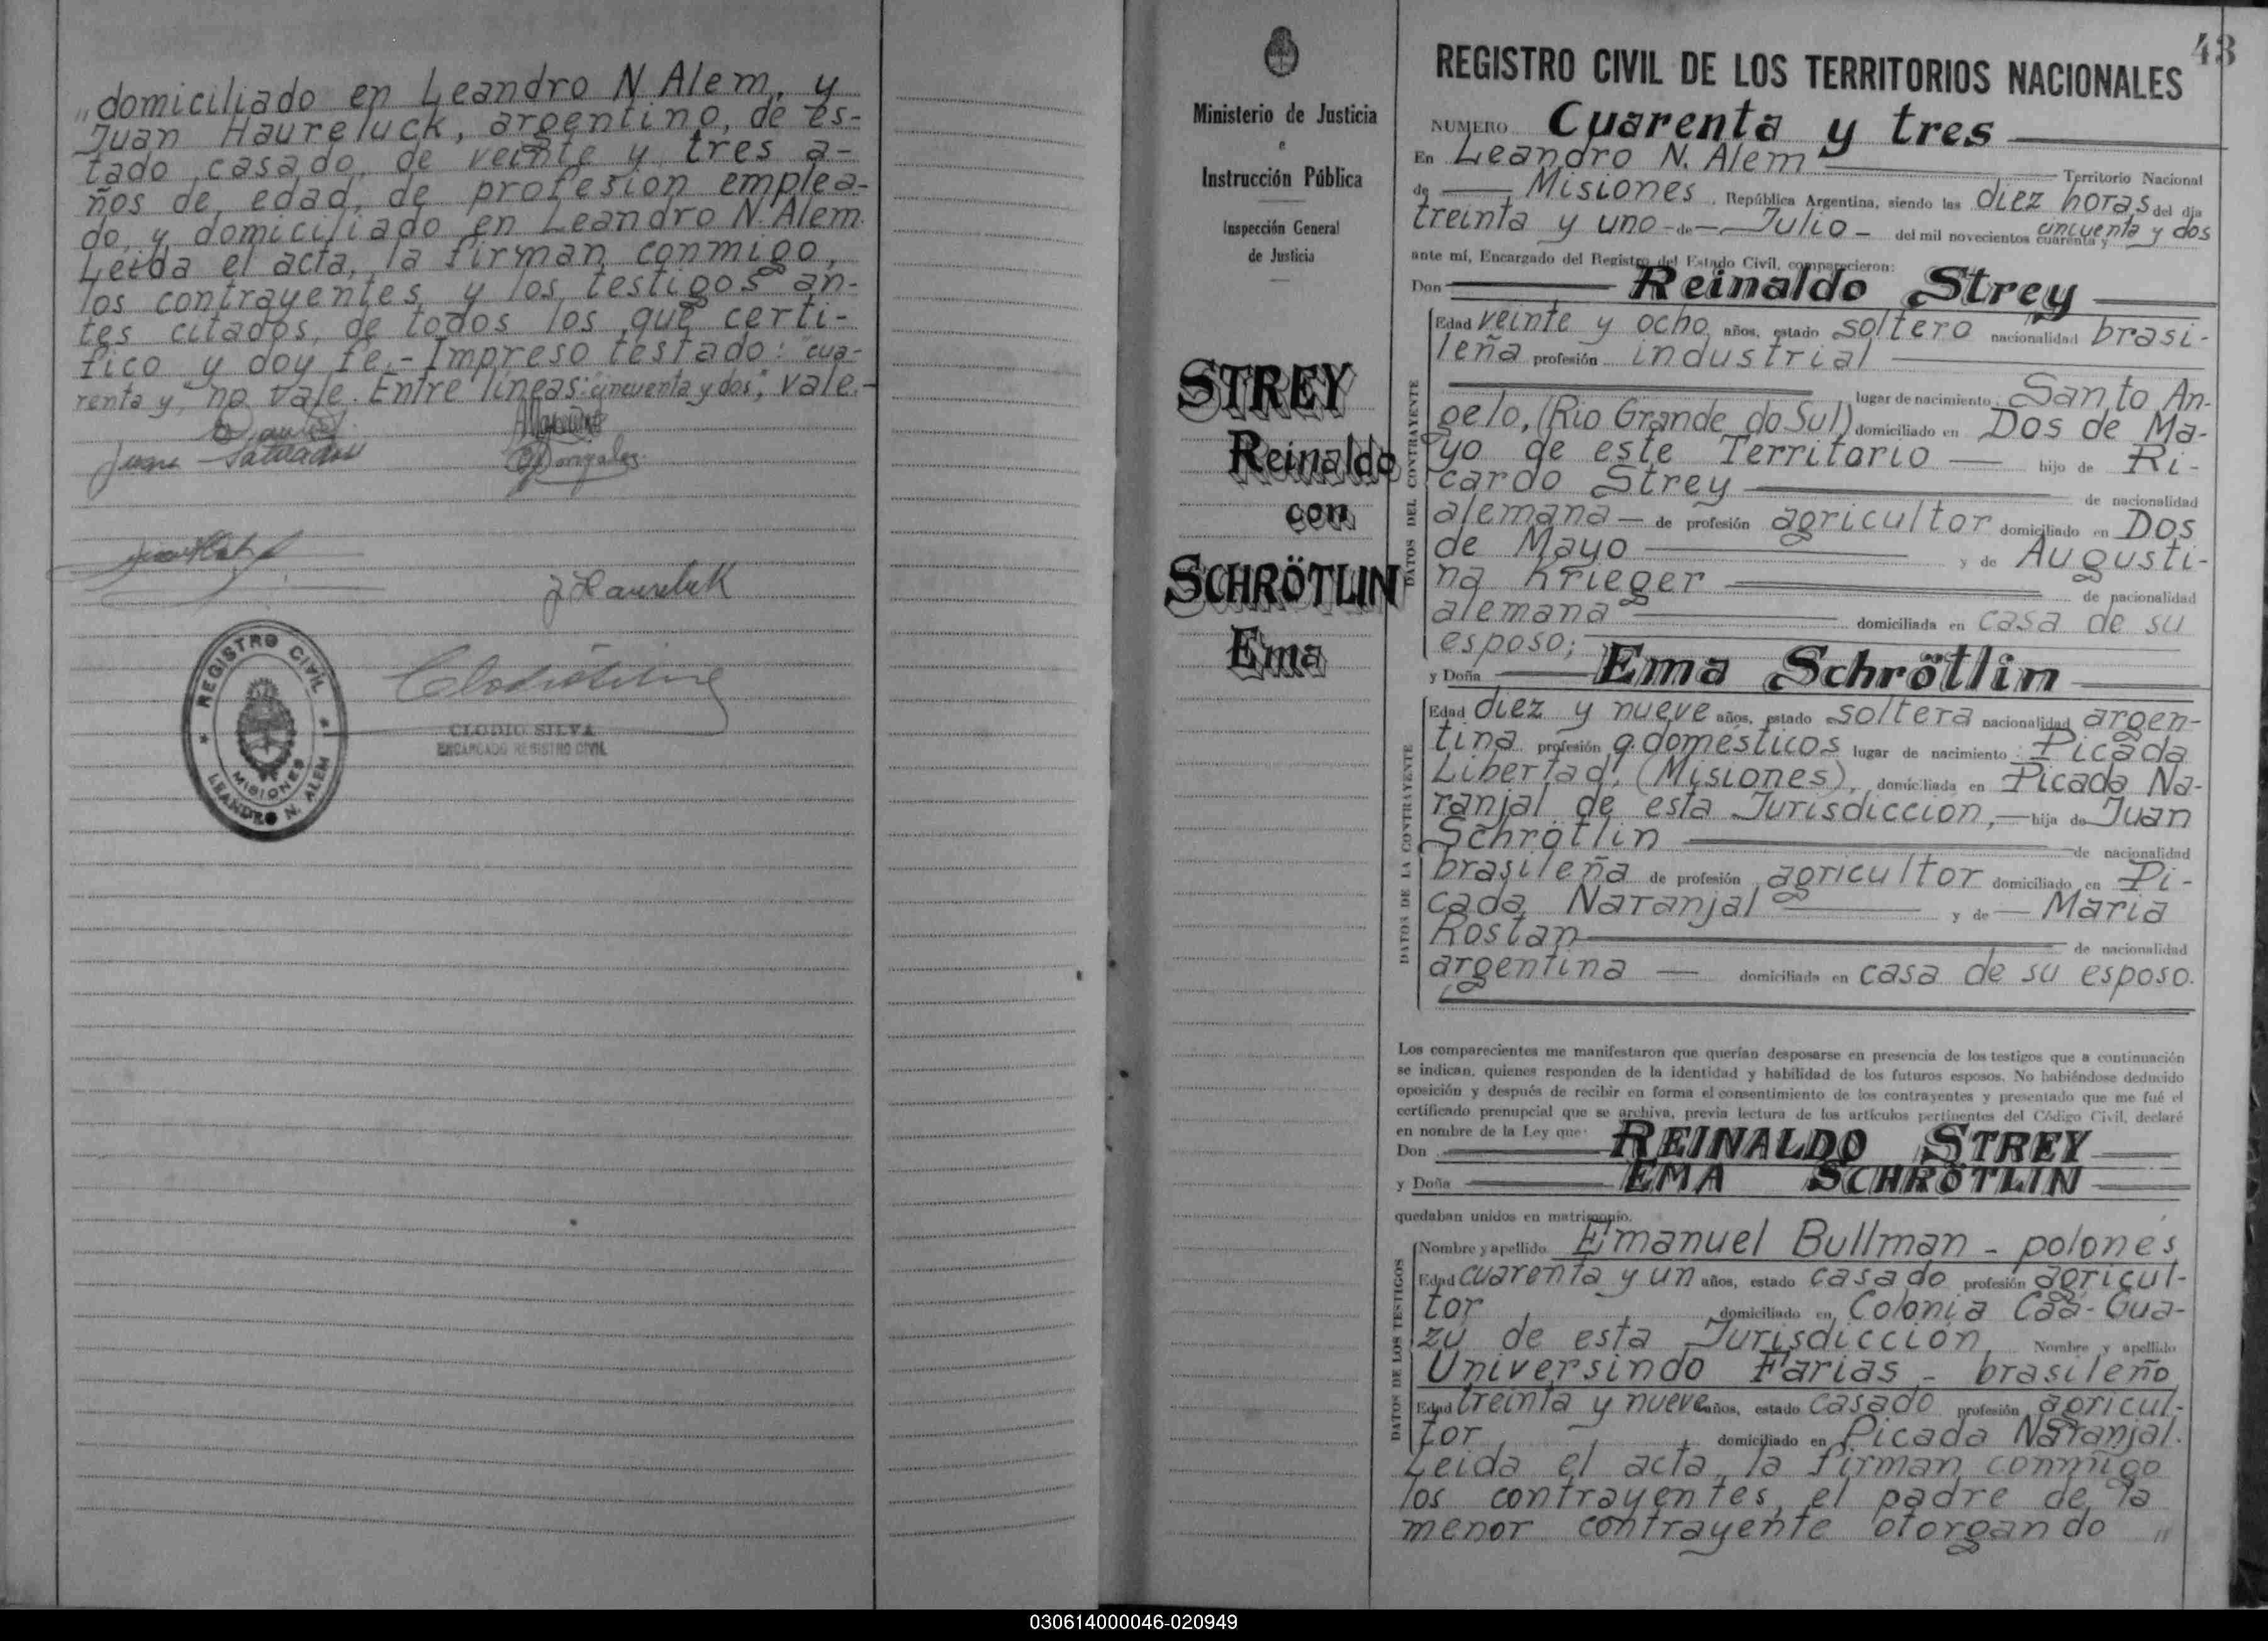 "domiciliado en Leandro N. Alem, y
Juan Haureluck, argentino, de es-
tado casado, de veinte y tres a-
ños de edad, de profesión emplea-
do, y domiciliado en Leandro N. Alem.
Leida el acta, la firman conmigo,
los contrayentes y los testigos an-
tes citados, de todos los que certi-
fico y doy fe.- Impreso testado: "cua-
renta y", no vale. Entre líneas: "cincuenta y dos", vale.-
J Haureluk
REGISTRO CIVIL
MISIONES
LEANDRO N. ALEM
CLODIO SILVA
ENCARGADO REGISTRO CIVIL
Ministerio de Justicia
e
Instrucción Pública
Inspección General
de Justicia
STREY
Reinaldo
con
SCHRÖTLIN
Ema
43
REGISTRO CIVIL DE LOS TERRITORIOS NACIONALES
NUMERO Cuarenta y tres
En Leandro N. Alem Territorio Nacional
de Misiones, República Argentina, siendo las diez horas del día
treinta y uno de Julio del mil novecientos cuarenta y cincuenta y dos
ante mí, Encargado del Registro del Estado Civil, comparecieron:
Don Reinaldo Strey
DATOS DEL CONTRAYENTE
Edad veinte y ocho años, estado soltero nacionalidad brasi-
leña profesión industrial
lugar de nacimiento Santo An-
gelo, (Rio Grande do Sul) domiciliado en Dos de Ma-
yo de este Territorio hijo de Ri-
cardo Strey de nacionalidad
alemana de profesión agricultor domiciliado en Dos
de Mayo y de Augusti-
na Krieger de nacionalidad
alemana domiciliada en casa de su
esposo;
y Doña Ema Schrötlin
DATOS DE LA CONTRAYENTE
Edad diez y nueve años, estado soltera nacionalidad argen-
tina profesión q. domésticos lugar de nacimiento: Picada
Libertad, (Misiones), domiciliada en Picada Na-
ranjal de esta Jurisdicción, hija de Juan
Schrötlin de nacionalidad
brasileña de profesión agricultor domiciliado en Pi-
cada Naranjal y de Maria
Rostan de nacionalidad
argentina domiciliada en casa de su esposo.
Los comparecientes me manifestaron que querían desposarse en presencia de los testigos que a continuación
se indican, quienes responden de la identidad y habilidad de los futuros esposos. No habiéndose deducido
oposición y después de recibir en forma el consentimiento de los contrayentes y presentado que me fué el
certificado prenupcial que se archiva, previa lectura de los artículos pertinentes del Código Civil, declaré
en nombre de la Ley que:
Don REINALDO STREY
y Doña EMA SCHRÖTLIN
quedaban unidos en matrimonio.
DATOS DE LOS TESTIGOS
Nombre y apellido Emanuel Bullman - polonés
Edad cuarenta y un años, estado casado profesión agricul-
tor domiciliado en Colonia Caá-Gua-
zú de esta Jurisdicción Nombre y apellido
Universindo Farias - brasileño
Edad treinta y nueve años, estado casado profesión agricul-
tor domiciliado en Picada Naranjal.
Leida el acta, la firman conmigo
los contrayentes, el padre de la
menor contrayente otorgando "
030614000046-020949